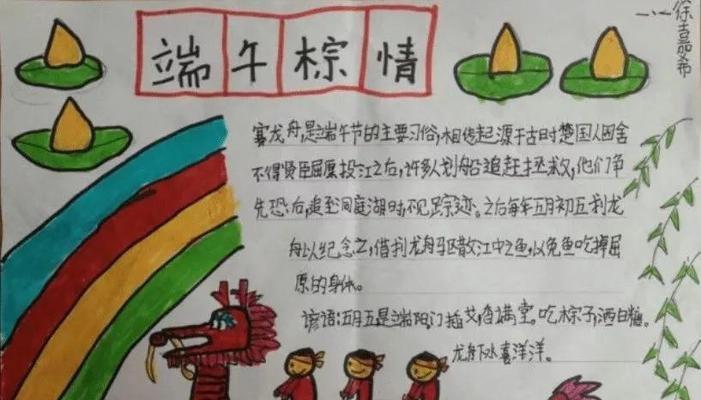 端午棕情
徐嘉希
赛龙舟,是端午节的主要习俗,相传起源于古时楚国人因舍
不得贤臣屈原投江之后,许多人划船追赶拯救,他们争
先恐后,追至洞庭湖时,不见踪迹。之后每年五月初五划龙
舟以纪念之,借划龙舟驱散江中之鱼,以免鱼吃掉屈
原的身体。
谚语:五月五是端阳门插艾香满堂。吃棕子洒白糖。
龙舟下水喜洋洋。